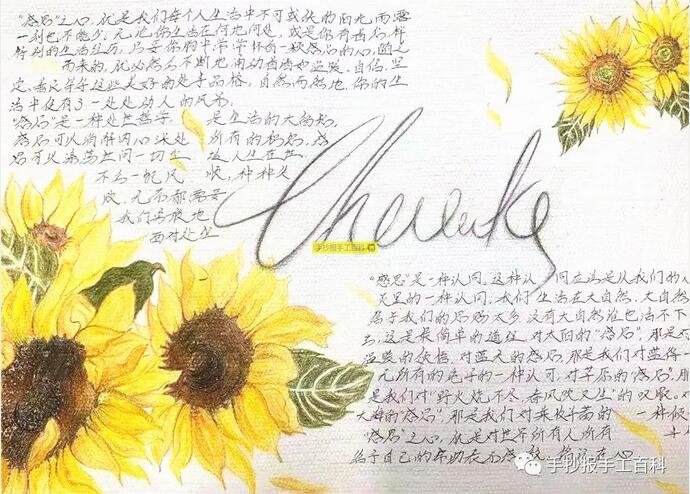 "感恩"之心，就是我们每个人生活中不可或缺的阳光雨露
一刻也不能少。无论你生活在何地何处，或是你有着怎样
特别的生活经历，只要你胸中常常怀着一颗感恩的心，随之
而来的，就必然会不断地涌动着诸如温暖、自信、坚
定、善良等等这些美好的处事品格，自然而然地，你的生
活中便有了一处处动人的风景。
"感恩"是一种处世哲学，是生活的大智慧，
感恩可以消解内心深处所有的积怨，感
恩可以涤荡世间一切尘 人生在世
不如一帆风 顺，种种失
败、无奈都需要
我们勇敢地
面对处
Thanks
手抄报手工百科
"感恩"是一种认同。这种认 同应该是从我们的心
灵里的一种认同，我们 生活在大自然，大自然
给予我们的恩赐太多。没有大自然谁也活不下
去，这是最简单的道理。对太阳的"感恩"，那是对
温暖的领悟。对蓝天的感恩，那是我们对蓝得一
无所有的色子的一种认可。对草原的"感恩"，那
是我们对"野火烧不尽，春风吹又生"的叹服。对
大海的"感恩"，那是我们对兼收并蓄的 一种倾
"感恩"之心，就是对世界所有人所有
给予自己的帮助表示感激
手抄报手工百科